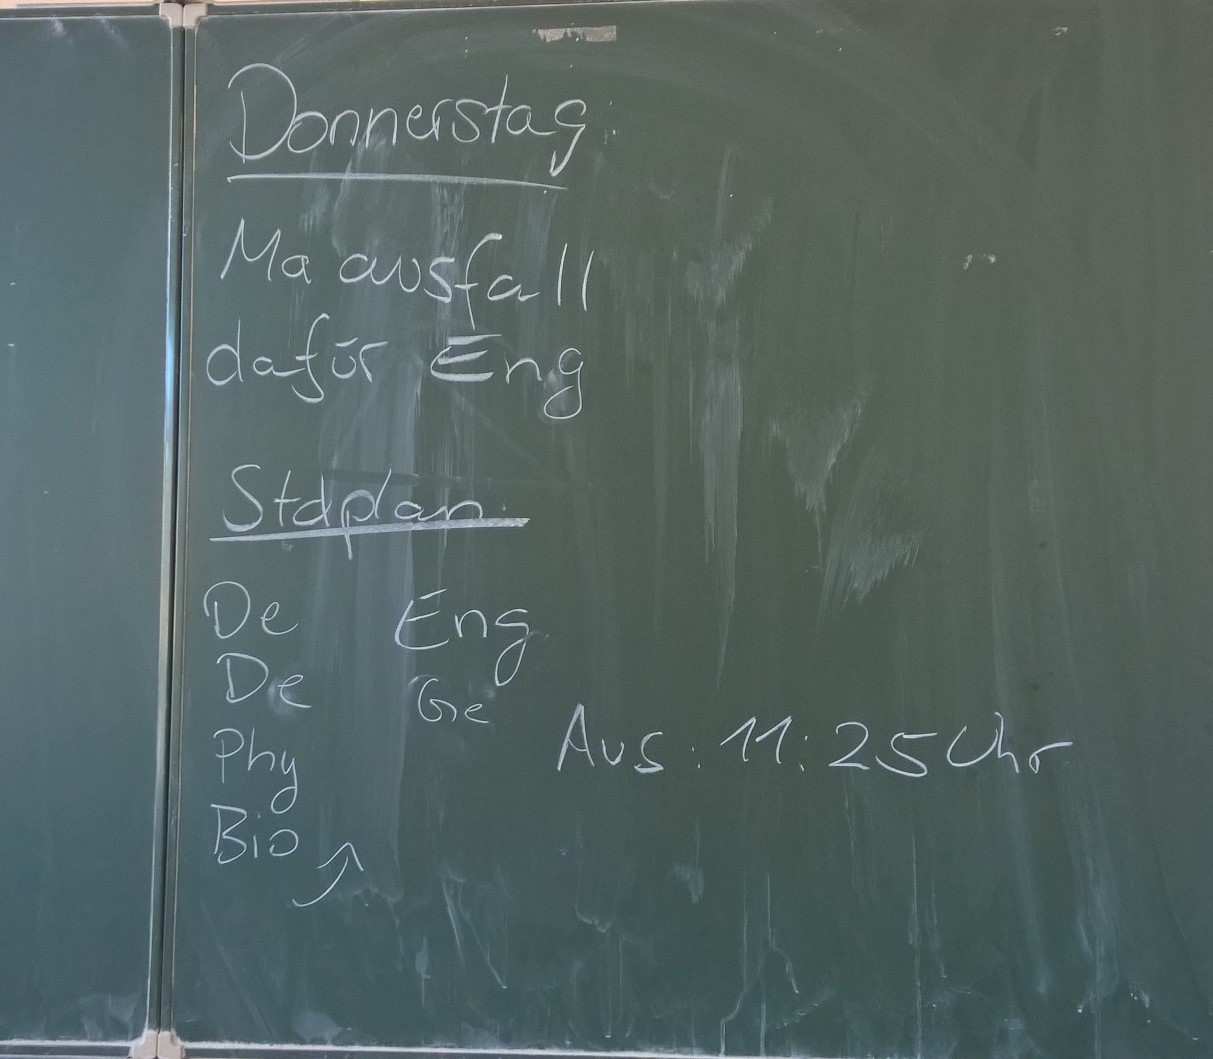 Donnerstag:
Ma ausfall
dafür Eng
Stdplan:
De
De
Phy
Bio
Eng
Ge
Aus: 11:25 Uhr